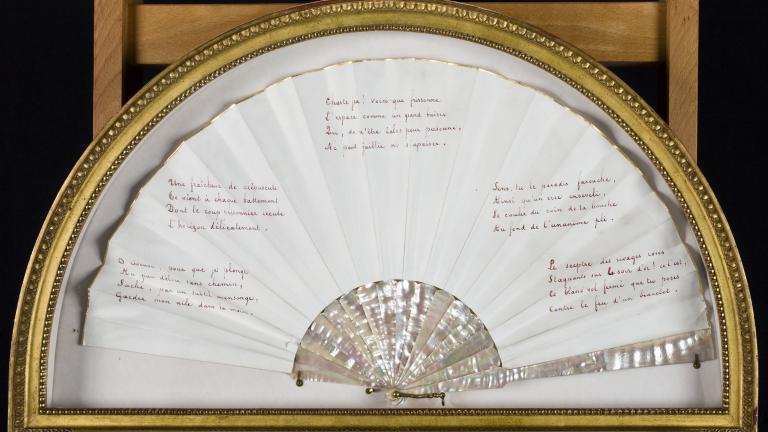 O rêveuse, pour que je plonge
Au pur délice sans chemin,
Sache, par un subtil mensonge,
Garder mon aile dans ta main.
Une fraîcheur de crépuscule
Te vient à chaque battement
Dont le coup prisonnier recule
L'horizon délicatement.
Chaste jeu! voici que frissonne
L'espace comme un grand baiser
Qui, de n'être éclos pour personne,
Ne peut jaillir ni s'apaiser.
Sens-tu le paradis farouche,
Ainsi qu'un rire enseveli,
Se couler du coin de ta bouche
Au fond de l'unanime pli.
Le sceptre des rivages roses
Stagnants sur le soir d'or! c'est,
Ce blanc vol fermé que tu poses
Contre le feu d'un bracelet.